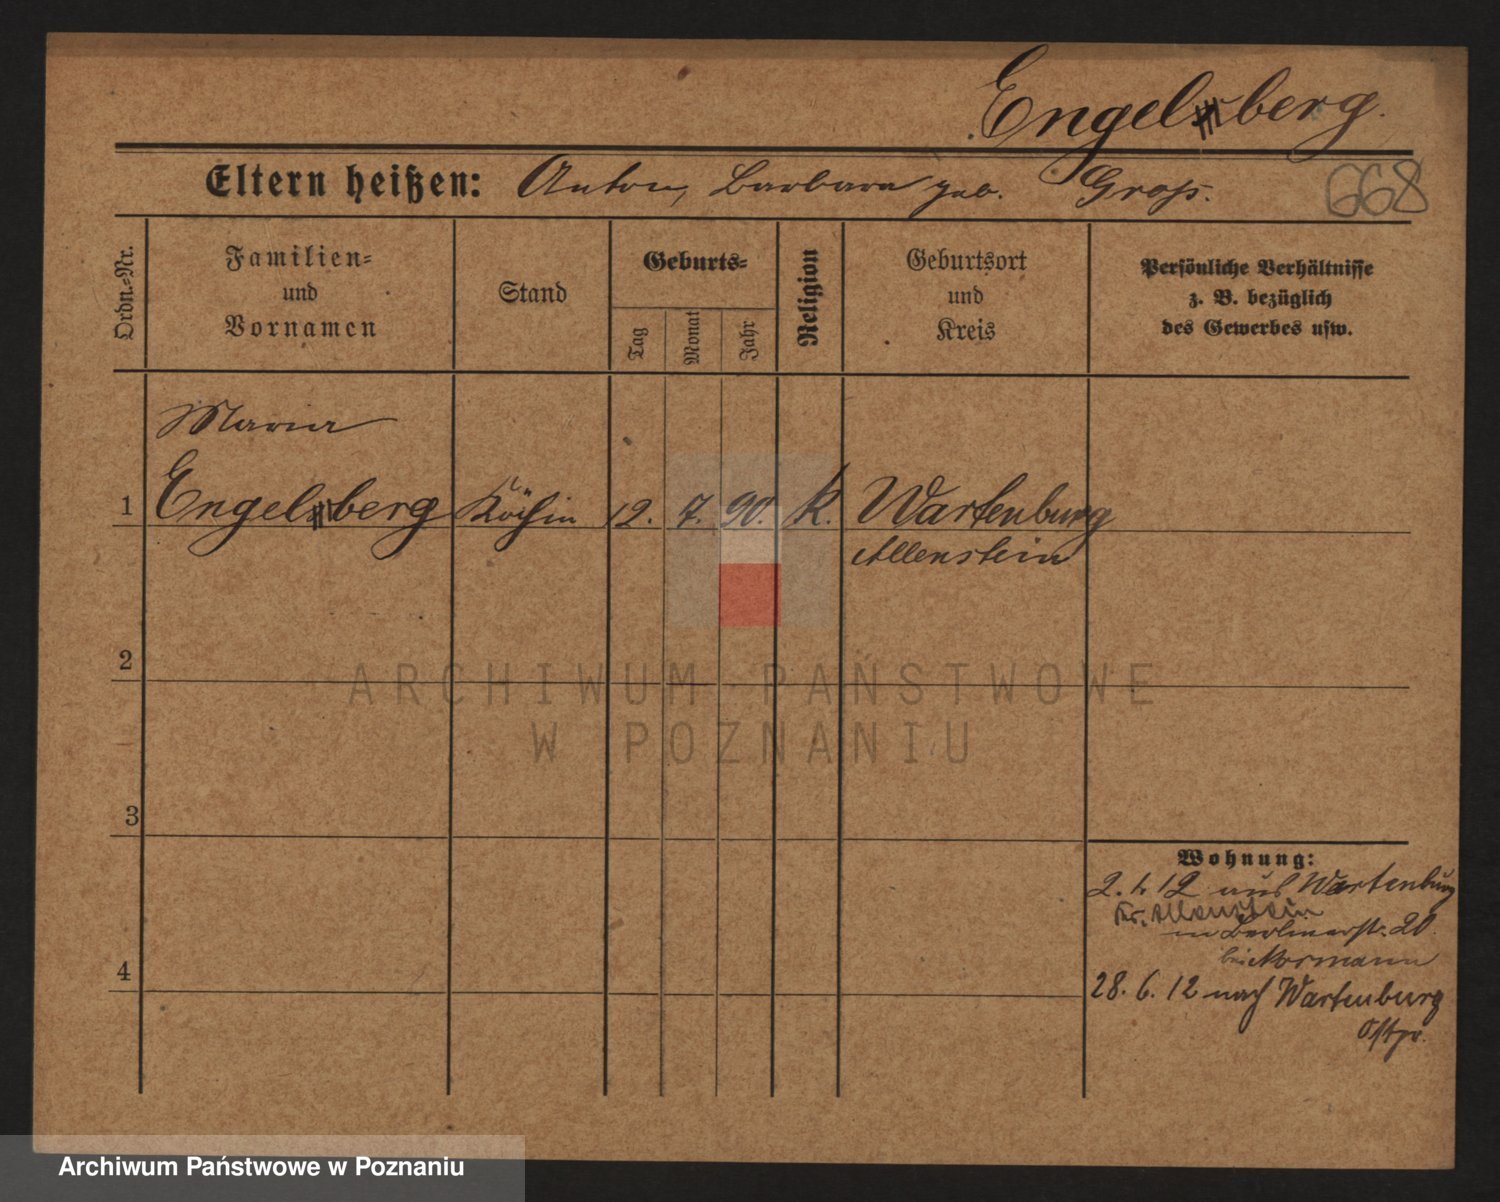 Engelsberg.
Eltern heißen: Anton, Barbara geb. Gross.
668
Ordn.-Nr.
Familien-
und
Vornamen
Stand
Geburts-
Tag
Monat
Jahr
Religion
Geburtsort
und
Kreis
Persönliche Verhältnisse
z. B. bezüglich
des Gewerbes usw.
Maria
1 Engelsberg Köchin 12. 7. 90. K. Wartenburg
Allenstein
2
ARCHIWUM PAŃSTWOWE
W POZNANIU
3
Wohnung:
2. 1. 12 aus Wartenburg
Kr. Allenstein
in Berlinerstr. 20.
bei Normann
4
28. 6. 12 nach Wartenburg
Ostpr.
Archiwum Państwowe w Poznaniu